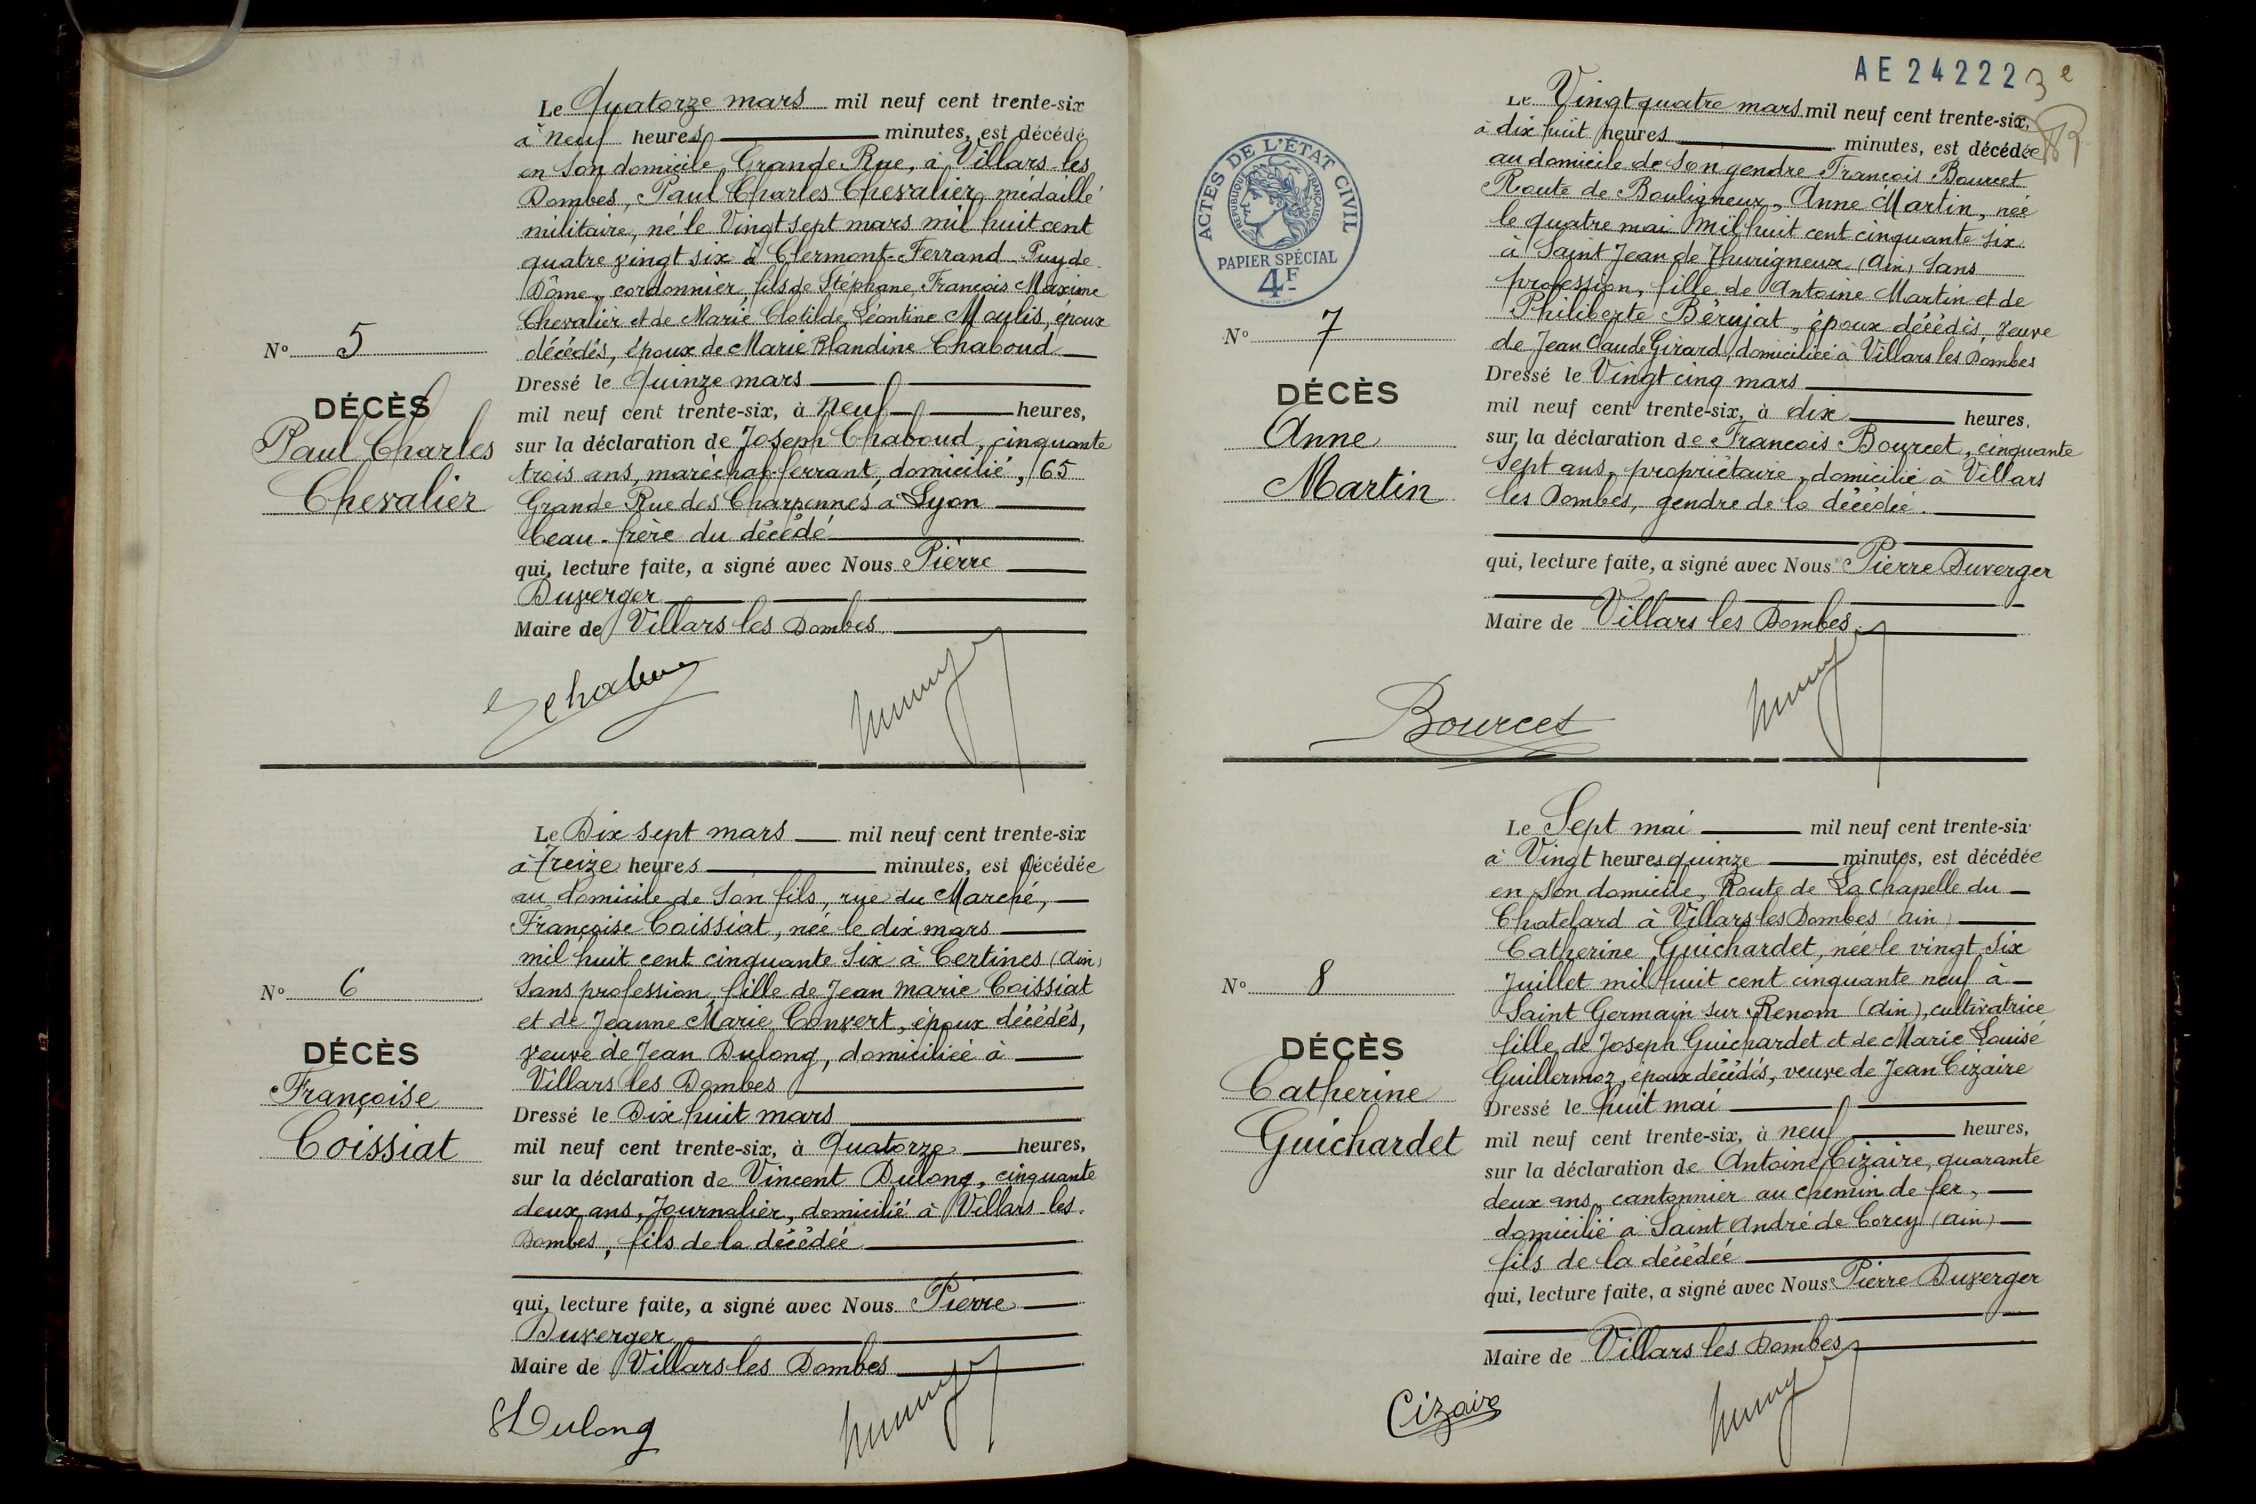 Le Quatorze mars mil neuf cent trente-six
à neuf heures minutes, est décédé
en son domicile, Grande Rue, à Villars les
Dombes, Paul Charles Chevalier, médaillé
militaire, né le Vingt sept mars mil huit cent
quatre vingt six à Clermont-Ferrand Puy de
Dôme, cordonnier, fils de Stéphane, François Maxime
Chevalier et de Marie, Clotilde, Léontine Moulis, époux
décédés, époux de Marie Blandine Chaboud
Nº 5
DÉCÈS
Paul Charles
Chevalier
Dressé le Quinze mars
mil neuf cent trente-six, à neuf heures,
sur la déclaration de Joseph Chaboud, cinquante
trois ans, maréchal ferrant, domicilié, 165
Grande Rue des Charpennes à Lyon
beau-frère du décédé
qui, lecture faite, a signé avec Nous Pierre
Duverger
Maire de Villars les Dombes
Le Dix sept mars mil neuf cent trente-six
à Treize heures minutes, est décédée
au domicile de son fils, rue du Marché,
Françoise Coissiat, née le dix mars
mil huit cent cinquante six à Certines (Ain)
sans profession, fille de Jean Marie Coissiat
et de Jeanne Marie Convert, époux décédés,
veuve de Jean Dulong, domiciliée à
Villars les Dombes
Nº 6
DÉCÈS
Françoise
Coissiat
Dressé le Dix huit mars
mil neuf cent trente-six, à Quatorze heures,
sur la déclaration de Vincent Dulong, cinquante
deux ans, Journalier, domicilié à Villars les
Dombes, fils de la décédée
qui, lecture faite, a signé avec Nous Pierre
Duverger
Maire de Villars les Dombes
Dulong
AE 24222
3e
ACTES DE L'ÉTAT CIVIL
RÉPUBLIQUE FRANÇAISE
PAPIER SPÉCIAL
4F
Le Vingt quatre mars mil neuf cent trente-six,
à dix huit heures minutes, est décédée
au domicile de son gendre François Bourcet
Route de Bouligneux, Anne Martin, née
le quatre mai mil huit cent cinquante six
à Saint Jean de Thurigneux (Ain) sans
profession, fille de Antoine Martin et de
Philiberte Bérujat, époux décédés, veuve
de Jean Claude Girard, domiciliée à Villars les Dombes
Nº 7
DÉCÈS
Anne
Martin
Dressé le Vingt cinq mars
mil neuf cent trente-six, à dix heures,
sur la déclaration de François Bourcet, cinquante
sept ans, propriétaire, domicilié à Villars
les Dombes, gendre de la décédée.
qui, lecture faite, a signé avec Nous Pierre Duverger
Maire de Villars les Dombes
Bourcet
Le Sept mai mil neuf cent trente-six
à Vingt heures quinze minutes, est décédée
en son domicile, Route de La Chapelle du
Chatelard à Villars les Dombes (Ain)
Catherine Guichardet, née le vingt six
Juillet mil huit cent cinquante neuf à
Saint Germain sur Renom (Ain), cultivatrice
fille de Joseph Guichardet et de Marie Louise
Guillermoz, époux décédés, veuve de Jean Cizaire
Nº 8
DÉCÈS
Catherine
Guichardet
Dressé le huit mai
mil neuf cent trente-six, à neuf heures,
sur la déclaration de Antoine Cizaire, quarante
deux ans, cantonnier au chemin de fer,
domicilié à Saint André de Corcy (Ain)
fils de la décédée
qui, lecture faite, a signé avec Nous Pierre Duverger
Maire de Villars les Dombes
Cizaire